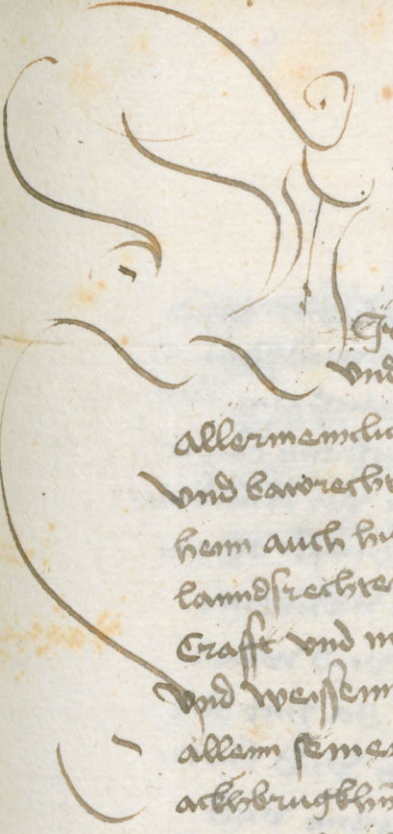 Vnd
allermeincklic
Vnd bawrecht
henn auch hu
lanndsrechte
Crafft vnd m
Vnd weissenn
allenn seine
ackhbrugkhn